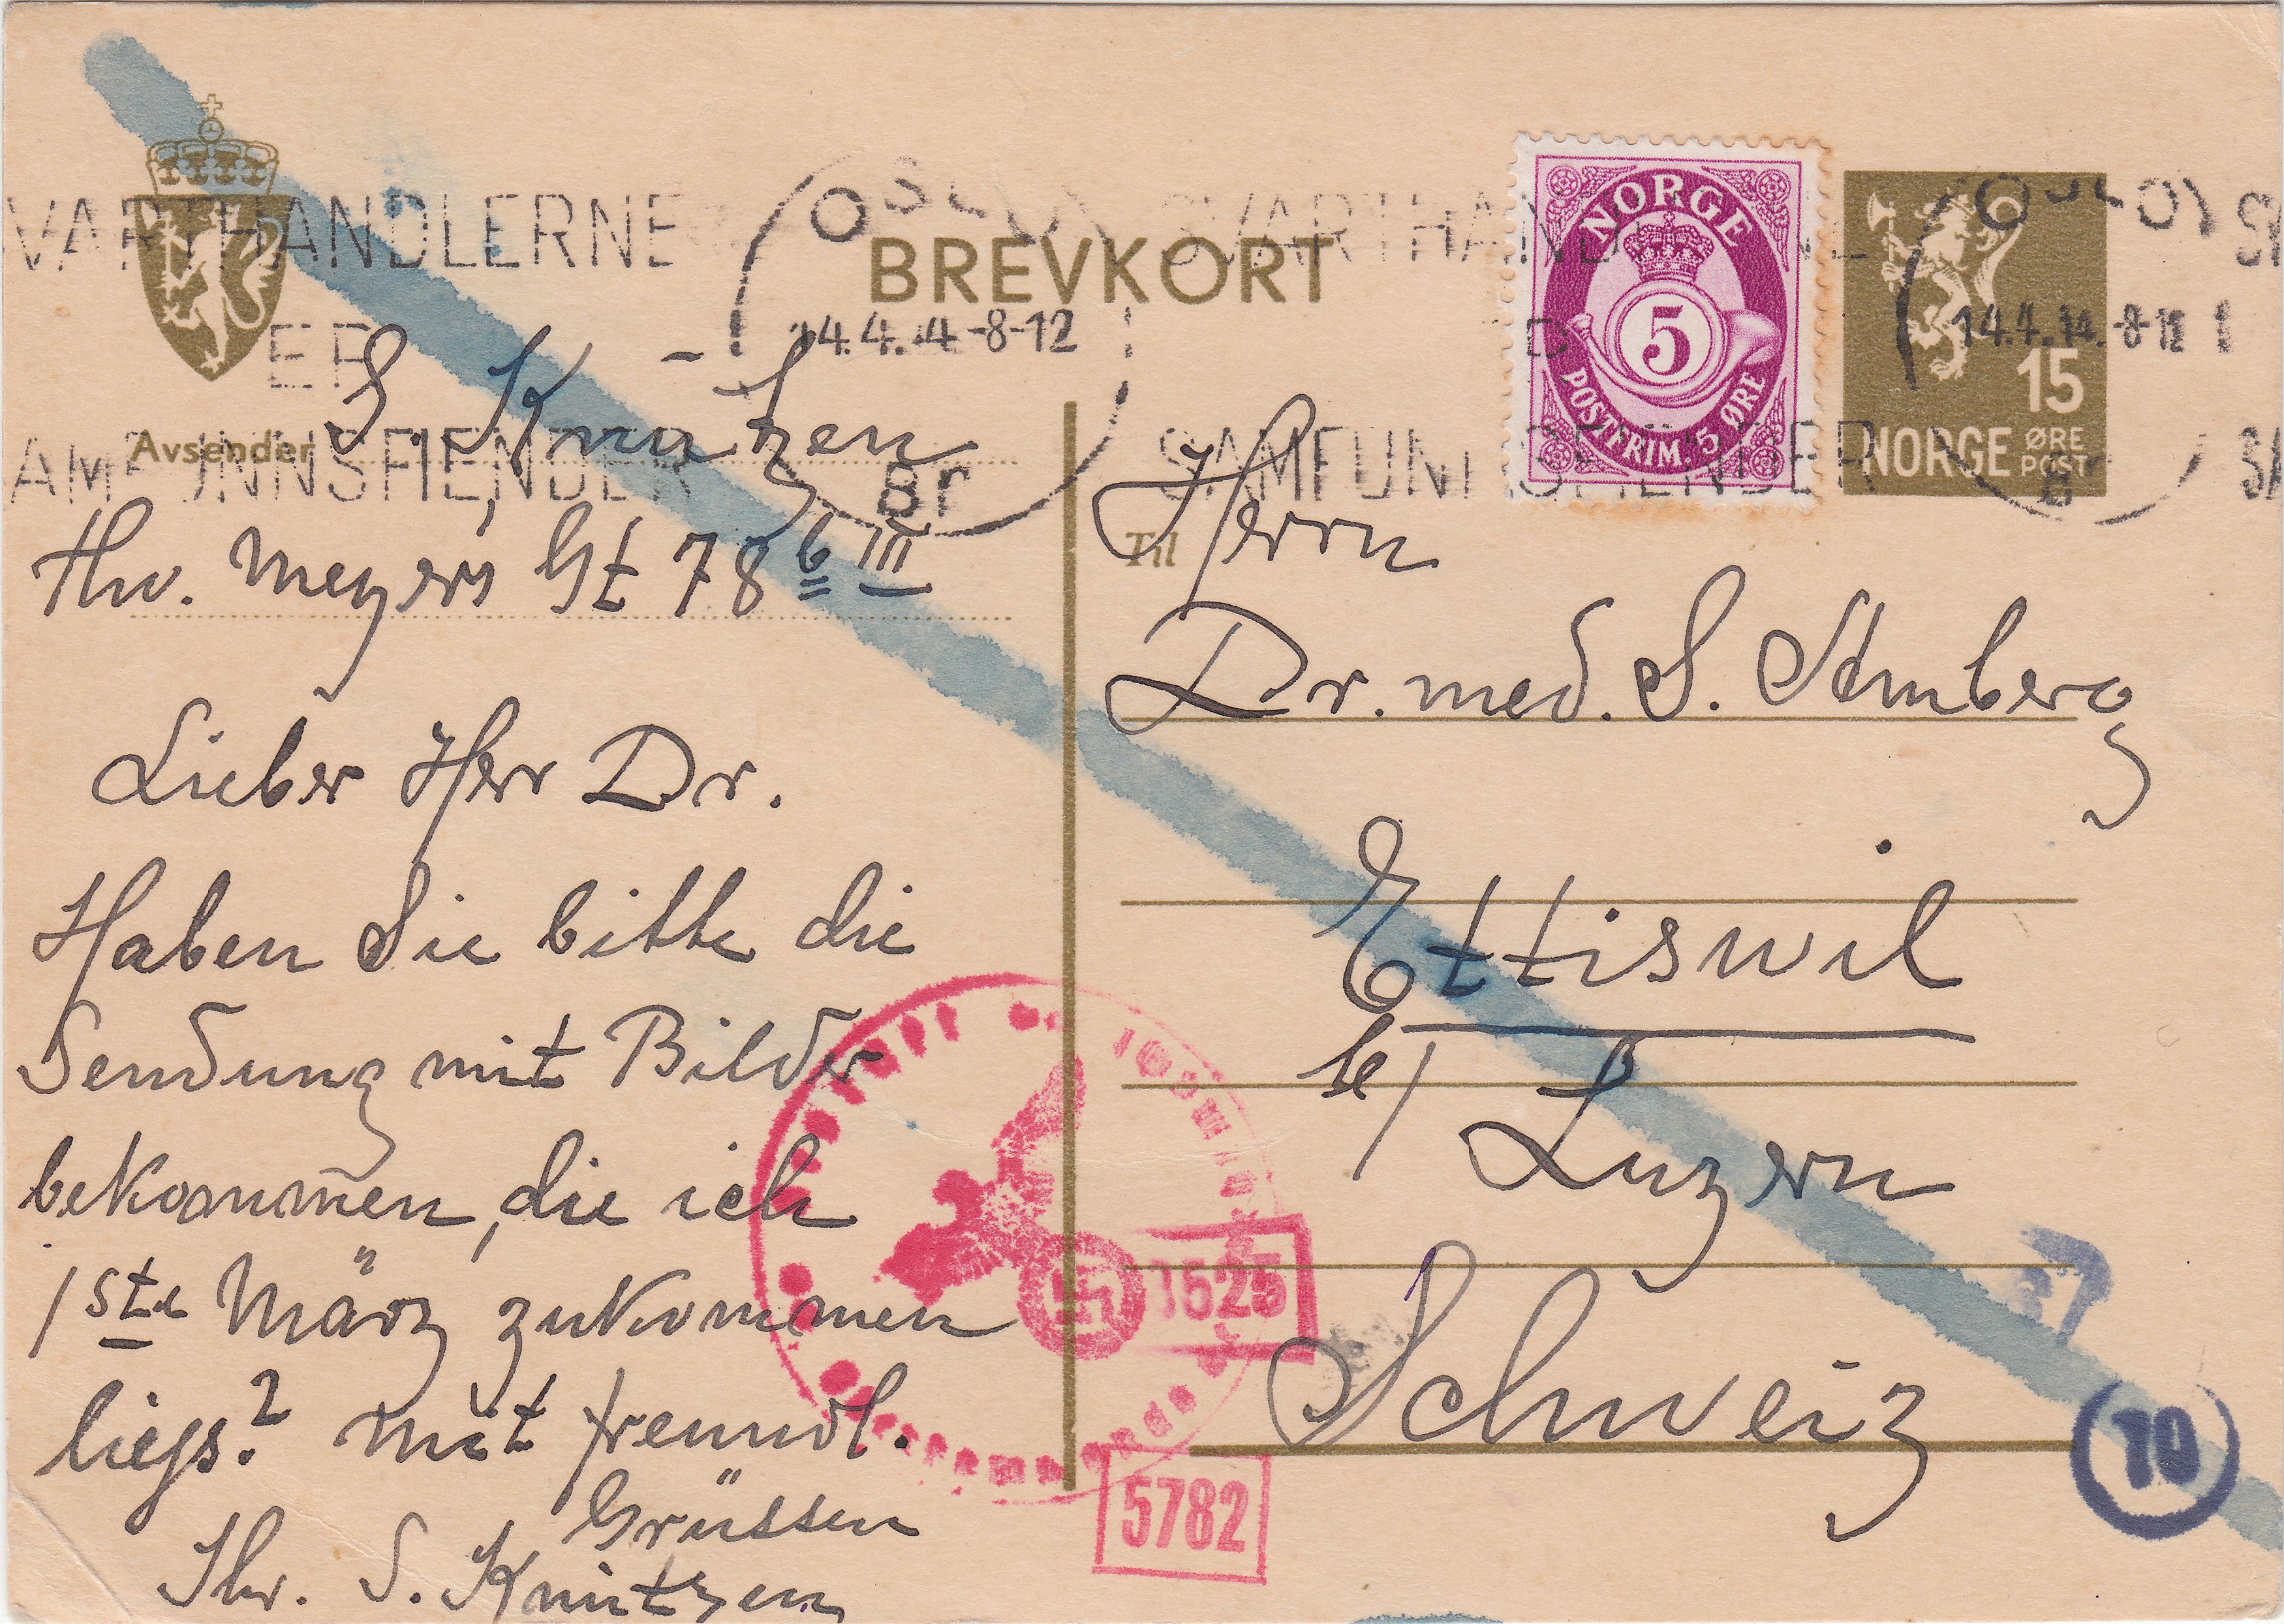 VARTHANDLERNE
ER
AMFUNNSFIENDER
OSLO
14.4.44-8-12
Br
BREVKORT
SVARTHANDLERNE
ER
SAMFUNNSFIENDER
NORGE
5
POSTFRIM. 5 ØRE
15
NORGE ØRE POST
OSLO
14.4.44.-8-12
Br
Avsender S. Knutzen
Thv. Meyers Gt 78 b III
Lieber Herr Dr.
Haben Sie bitte die
Sendung mit Bilder
bekommen, die ich
1ste März zukommen
liess? Mit freundl.
Grüssen
Ihr. S. Knutzen
Til Herrn
Dr. med. S. Amberg
Ettiswil
b/ Luzern
Schweiz
1525
5782
19